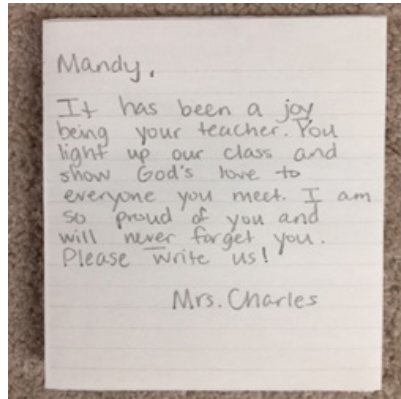 Mandy,
It has been a joy
being your teacher. You
light up our class and
show God's love to
everyone you meet. I am
so proud of you and
will never forget you.
Please write us!
Mrs. Charles